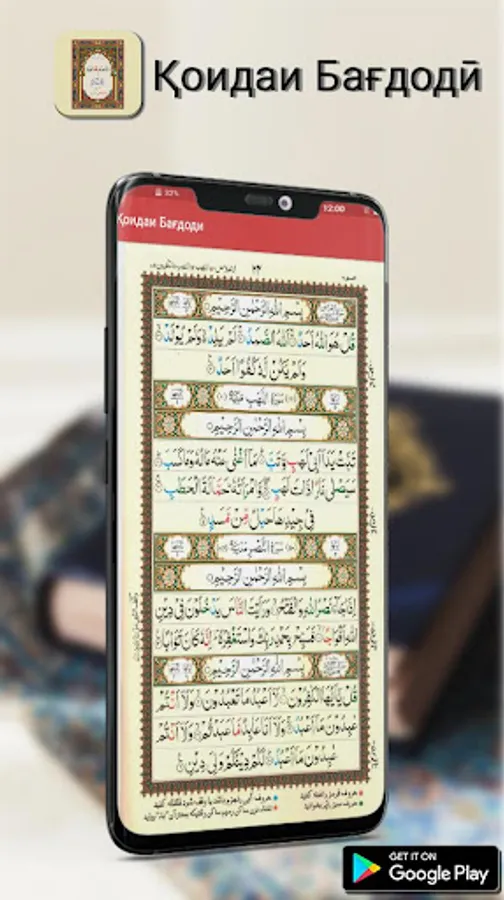 Қоидаи Бағдодӣ
12:00
Қоидаи Бағдоди
٢٢
بِسْمِ اللهِ الرَّحْمٰنِ الرَّحِيْمِ
قُلْ هُوَ اللهُ اَحَدٌ اَللهُ الصَّمَدُ لَمْ يَلِدْ وَلَمْ يُوْلَدْ
وَلَمْ يَكُنْ لَهٗ كُفُوًا اَحَدٌ
سُوْرَةُ اللَّهَبِ
بِسْمِ اللهِ الرَّحْمٰنِ الرَّحِيْمِ
تَبَّتْ يَدَا اَبِيْ لَهَبٍ وَتَبَّ مَا اَغْنٰى عَنْهُ مَالُهٗ وَمَا كَسَبَ
سَيَصْلٰى نَارًا ذَاتَ لَهَبٍ وَامْرَاَتُهٗ حَمَّالَةَ الْحَطَبِ
فِيْ جِيْدِهَا حَبْلٌ مِّنْ مَّسَدٍ
سُوْرَةُ النَّصْرِ مَدَنِيَّة
بِسْمِ اللهِ الرَّحْمٰنِ الرَّحِيْمِ
اِذَا جَاءَ نَصْرُ اللهِ وَالْفَتْحُ وَرَاَيْتَ النَّاسَ يَدْخُلُوْنَ فِيْ دِيْنِ
اللهِ اَفْوَاجًا فَسَبِّحْ بِحَمْدِ رَبِّكَ وَاسْتَغْفِرْهُ اِنَّهٗ كَانَ تَوَّابًا
بِسْمِ اللهِ الرَّحْمٰنِ الرَّحِيْمِ
قُلْ يٰاَيُّهَا الْكٰفِرُوْنَ لَا اَعْبُدُ مَا تَعْبُدُوْنَ وَلَا اَنْتُمْ
عٰبِدُوْنَ مَا اَعْبُدُ وَلَا اَنَا عَابِدٌ مَّا عَبَدْتُّمْ وَلَا اَنْتُمْ
عٰبِدُوْنَ مَا اَعْبُدُ لَكُمْ دِيْنُكُمْ وَلِيَ دِيْنِ
GET IT ON
Google Play